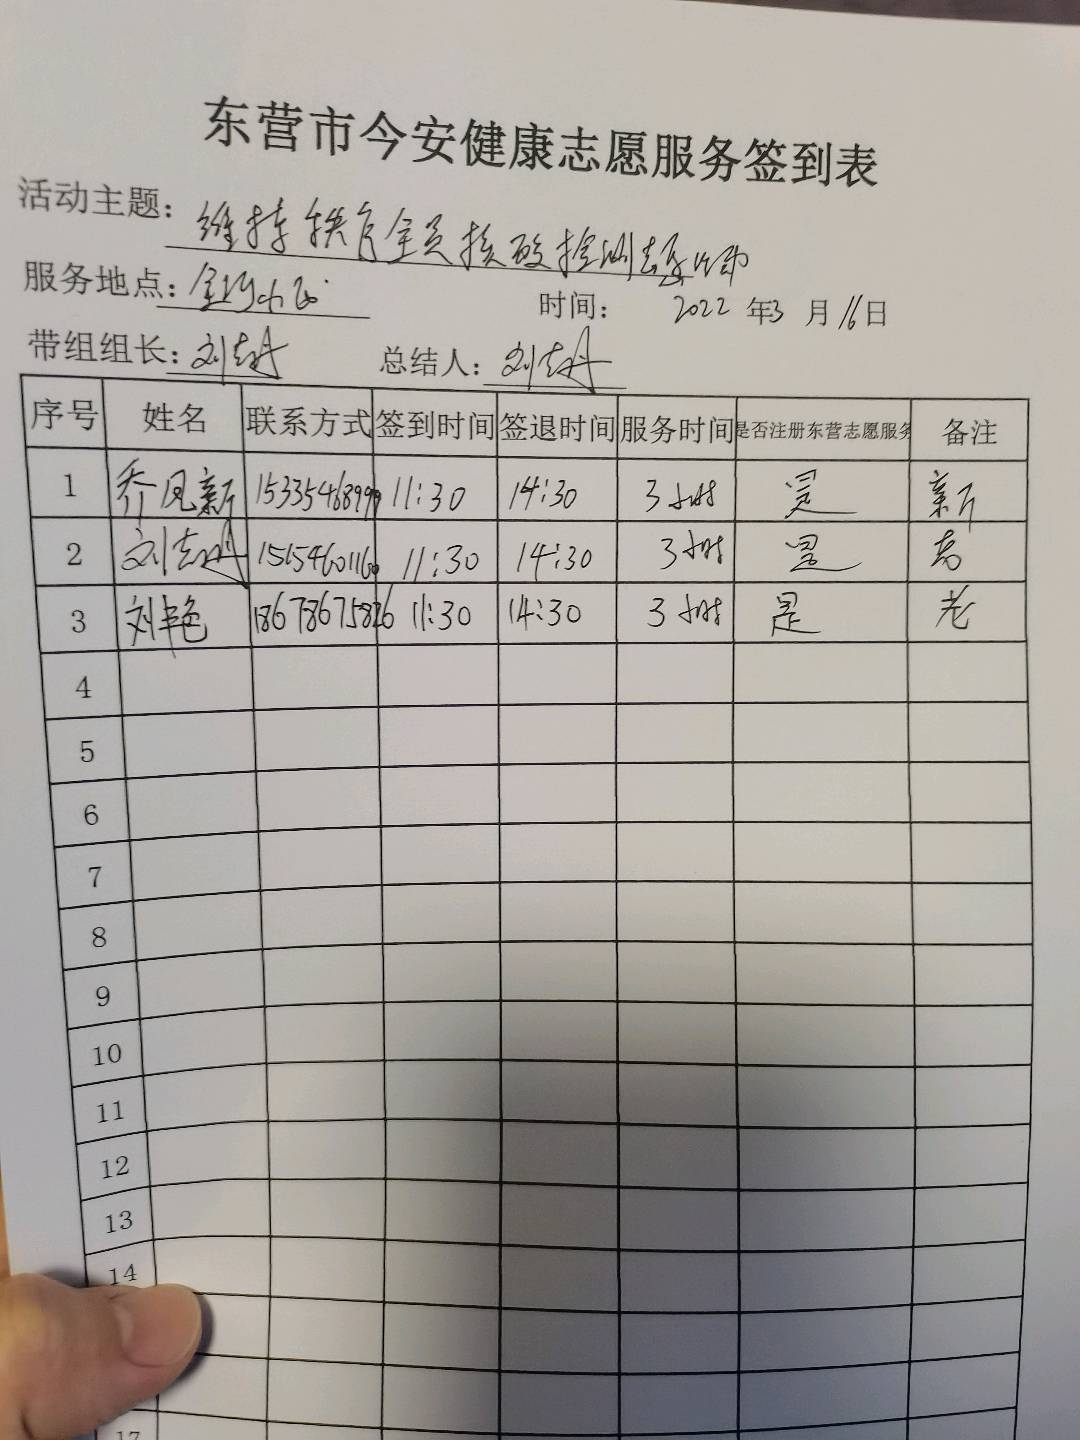 东营市今安健康志愿服务签到表
活动主题: 维持秩序全员核酸检测志愿
服务地点: 小区 时间: 2022 年3 月 16日
带组组长: 刘志丹 总结人: 刘志丹
序号 姓名 联系方式 签到时间 签退时间 服务时间 是否注册东营志愿服务 备注
1 乔凤新 15335468999 11:30 14:30 3小时 是 新
2 刘志丹 15154601160 11:30 14:30 3小时 是
3 刘艳 18678675826 11:30 14:30 3小时 是 老
4
5
6
7
8
9
10
11
12
13
14
17